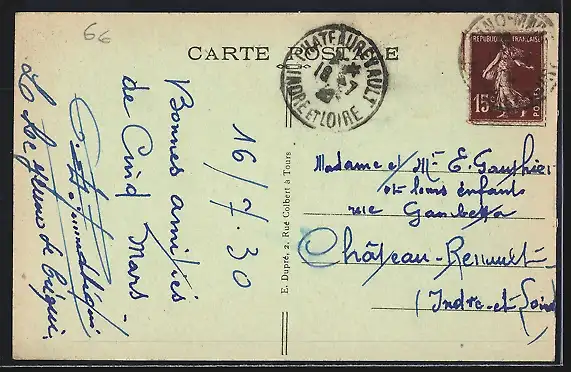 66
CARTE POSTALE
CHATEAURENAULT
INDRE ET LOIRE
REPUBLIQUE FRANÇAISE
15c
POSTES
16/7.30
Bonnes amitiés
de Cinq Mars-
Madame et Mr E. Gauthier
et leurs enfants
rue Gambetta
Château-Renault
(Indre-et-Loire)
E. Dupré, 2, Rue Colbert à Tours